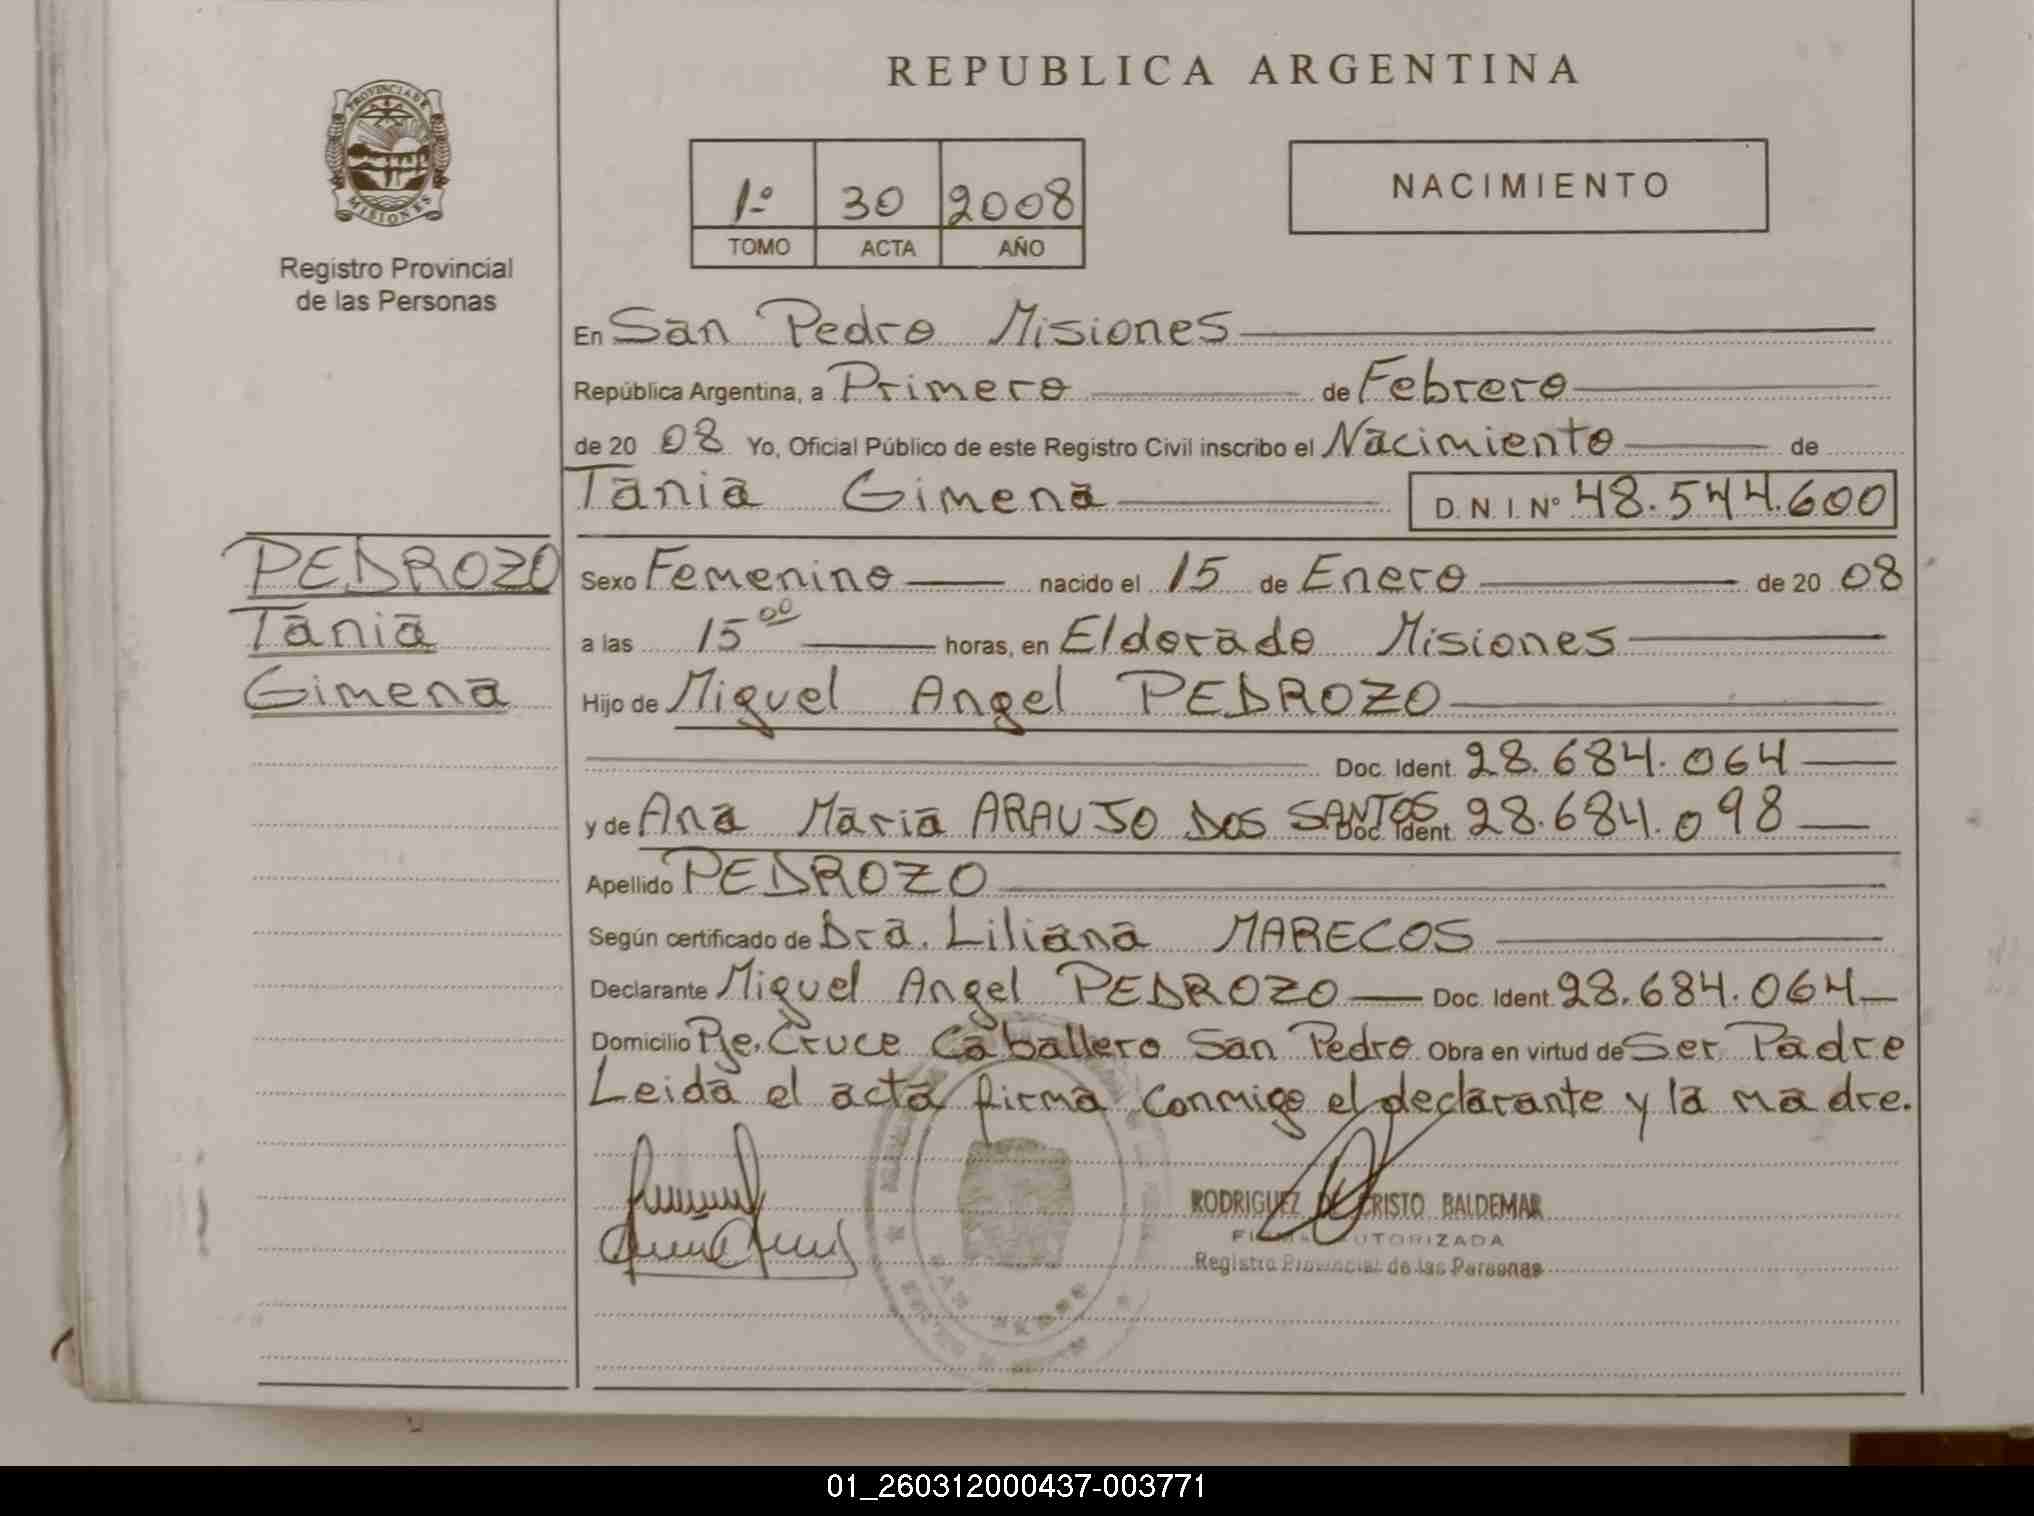 REPUBLICA ARGENTINA
PROVINCIA DE
MISIONES
Registro Provincial
de las Personas
1º 30 2008
TOMO ACTA AÑO
NACIMIENTO
En San Pedro Misiones
República Argentina, a Primero de Febrero
de 20 08 Yo, Oficial Público de este Registro Civil inscribo el Nacimiento de
Tania Gimena D. N. I. Nº 48.544.600
PEDROZO
Tania
Gimena
Sexo Femenino nacido el 15 de Enero de 20 08
a las 15 00 horas, en Eldorado Misiones
Hijo de Miguel Angel PEDROZO
Doc. Ident. 28.684.064
y de Ana Maria ARAUJO DOS SANTOS Doc. Ident. 28.684.098
Apellido PEDROZO
Según certificado de Dra. Liliana MARECOS
Declarante Miguel Angel PEDROZO Doc. Ident. 28.684.064
Domicilio Pje. Cruce Caballero San Pedro Obra en virtud de Ser Padre
Leida el acta firma conmigo el declarante y la madre.
RODRIGUEZ DE CRISTO BALDEMAR
FIRMA AUTORIZADA
Registro Provincial de las Personas
SAN PEDRO
01_260312000437-003771